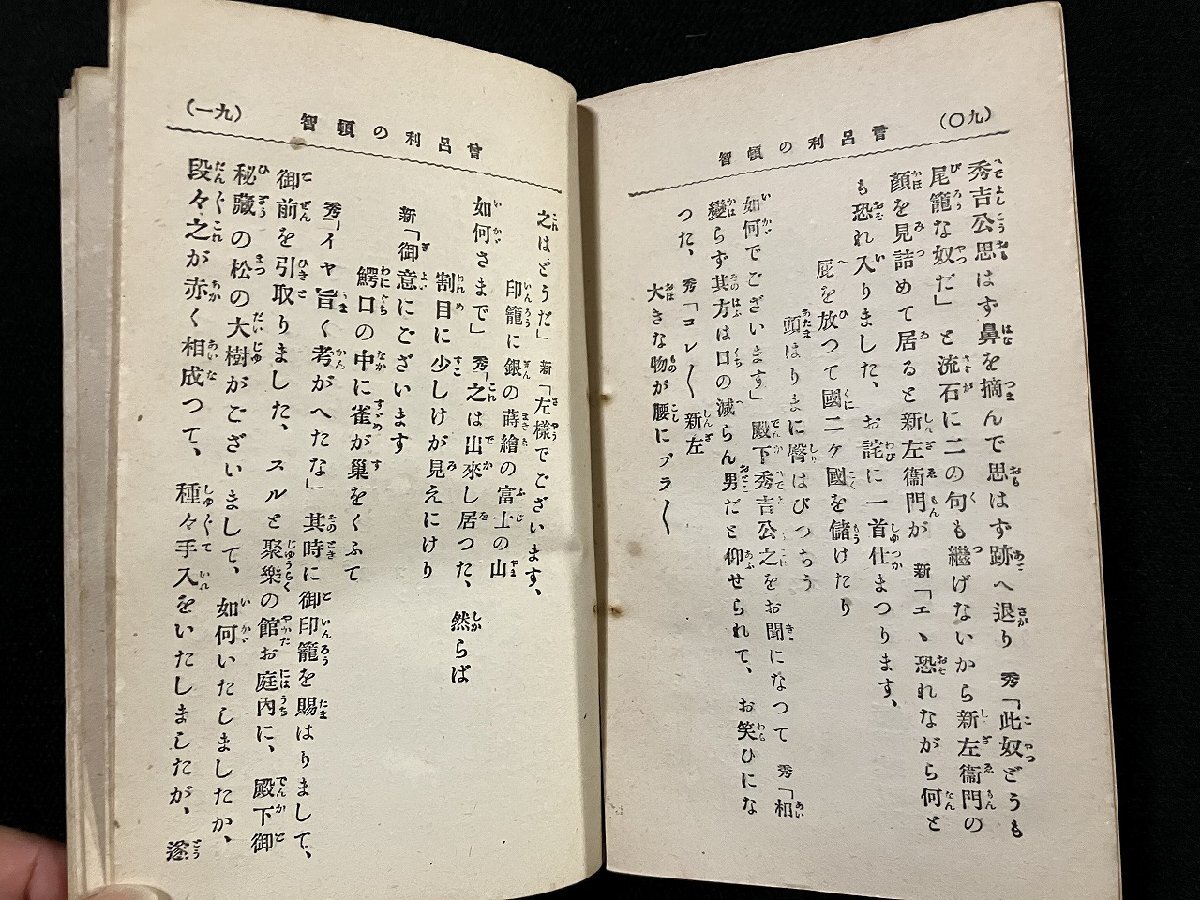 (九〇)
曾呂利の頓智
秀吉公思はず鼻を摘んで思はず跡へ退り 秀「此奴どうも
尾籠な奴だ」と流石に二の句も繼げないから新左衞門の
顔を見詰めて居ると新左衞門が 新「エヽ恐れながら何と
も恐れ入りました、お詫に一首仕まつります、
屁を放つて國二ケ國を儲けたり
頭はりまに臀はびつちう
如何でございます」殿下秀吉公之をお聞になつて 秀「相
變らず其方は口の減らん男だと仰せられて、お笑ひにな
つた、 秀「コレ〱新左
大きな物が腰にブラ〱
(九一)
曾呂利の頓智
之はどうだ」 新「左樣でございます、
印籠に銀の蒔繪の富士の山
如何さまで」 秀「之は出來し居つた、然らば
割目に少しけが見えにけり
新「御意にございます
鰐口の中に雀が巢をくふて
秀「イヤ旨く考がへたな」其時に御印籠を賜はりまして、
御前を引取りました、スルと聚樂の館お庭内に、殿下御
秘藏の松の大樹がございまして、如何いたしましたか、
段々之が赤く相成つて、種々手入をいたしましたが、遂